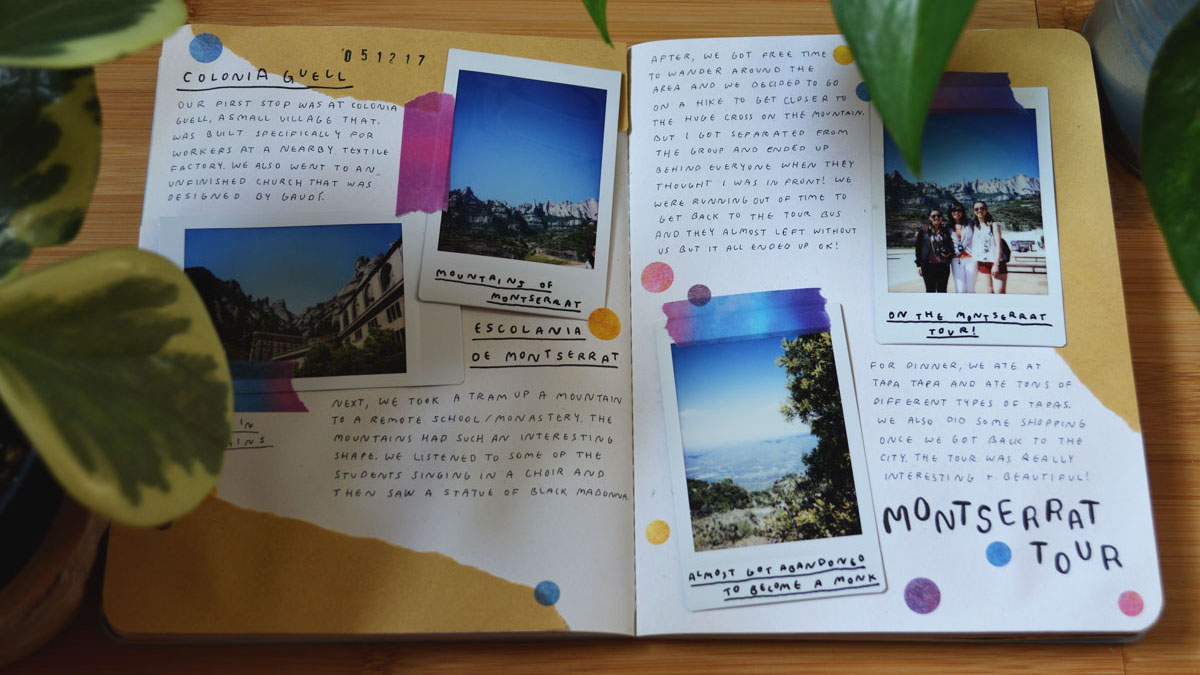 051217
COLONIA GUELL
OUR FIRST STOP WAS AT COLONIA
GUELL, A SMALL VILLAGE THAT
WAS BUILT SPECIFICALLY FOR
WORKERS AT A NEARBY TEXTILE
FACTORY. WE ALSO WENT TO AN
UNFINISHED CHURCH THAT WAS
DESIGNED BY GAUDI.
MOUNTAINS OF
MONTSERRAT
ESCOLANIA
DE MONTSERRAT
IN
NEXT, WE TOOK A TRAM UP A MOUNTAIN
TO A REMOTE SCHOOL/MONASTERY. THE
MOUNTAINS HAD SUCH AN INTERESTING
SHAPE. WE LISTENED TO SOME OF THE
STUDENTS SINGING IN A CHOIR AND
THEN SAW A STATUE OF BLACK MADONNA.
AFTER, WE GOT FREE TIME
TO WANDER AROUND THE
AREA AND WE DECIDED TO GO
ON A HIKE TO GET CLOSER TO
THE HUGE CROSS ON THE MOUNTAIN.
BUT I GOT SEPARATED FROM
THE GROUP AND ENDED UP
BEHIND EVERYONE WHEN THEY
THOUGHT I WAS IN FRONT! WE
WERE RUNNING OUT OF TIME TO
GET BACK TO THE TOUR BUS
AND THEY ALMOST LEFT WITHOUT
US BUT IT ALL ENDED UP OK!
ON THE MONTSERRAT
TOUR!
ALMOST GOT ABANDONED
TO BECOME A MONK
FOR DINNER, WE ATE AT
TAPA TAPA AND ATE TONS OF
DIFFERENT TYPES OF TAPAS.
WE ALSO DID SOME SHOPPING
ONCE WE GOT BACK TO THE
CITY. THE TOUR WAS REALLY
INTERESTING + BEAUTIFUL!
MONTSERRAT
TOUR